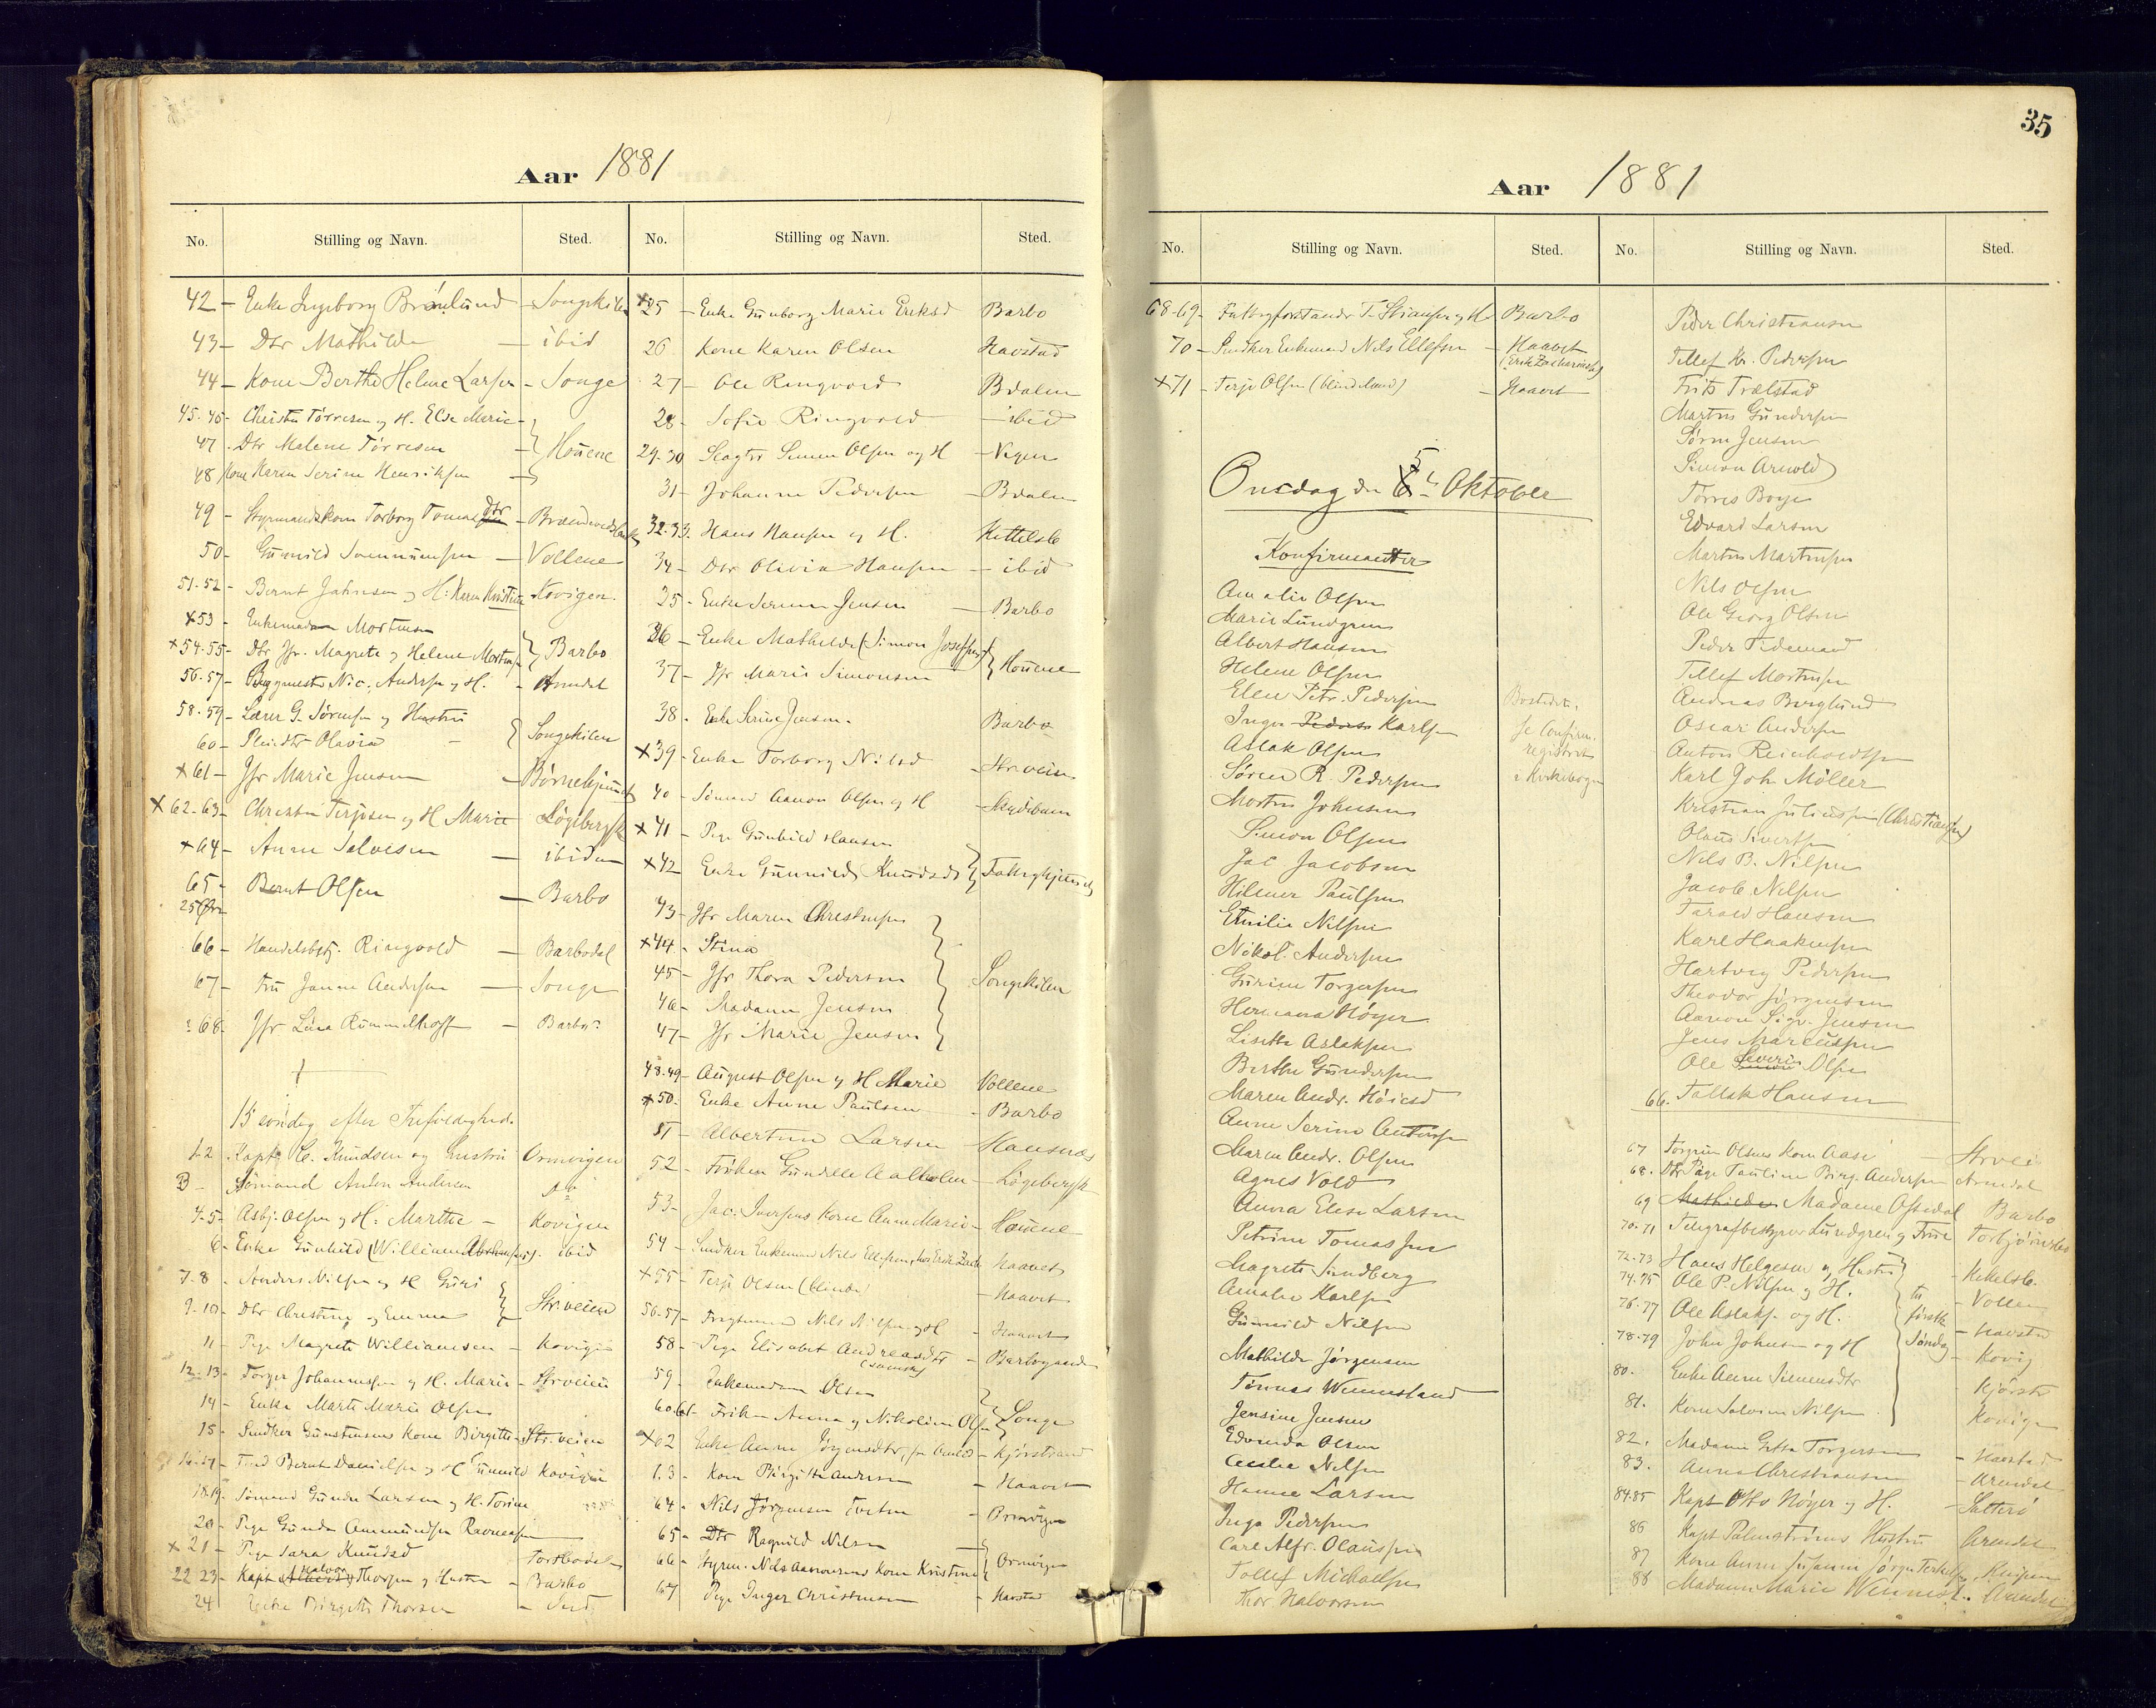 Aar 1881
No. Stilling og Navn. Sted. No. Stilling og Navn. Sted.
42 – Enke Ingeborg Brönlund – Songekilen
43 – Dtr Mathilde – ibid
44 – Kone Berthe Helene Larsen – Songe
45-46 – Christen Törresen og H. Else Marie –
47 – Dtr Malene Törresen – Houene
48 Kone Karen Serine Henriksen –
49 – Styrmandskone Torborg Tomasdtr –
50 – Gunnild – Vollene
51-52 – Bernt Jahnsen og H: Karen Kristine – Kovigen
x 53 – Enkemadam Mortensen
x 54-55 – Dtr Jfr. Magrete og Helene Mortensen Barbo
56-57 – Bygmester Nic. Andersen og H. – Arendal
58-59 – Lærer G. Sörensen og Hustru
60 – Pleiedtr Olavia – Songekilen
x 61 – Jfr Marie Jensen –
x 62-63 – Christen Terjesen og H Marie Lögebergsk
x 64 – Anne Salvesen – ibidem
65 – Bernt Olsen – Barbo
25 Öre
66 – Handelsbstj. Ringvold – Barbodal
67 – Fru Janna Andersen – Songe
68 – Jfr Lina Rummelhoff – Barbo
15 söndag efter Trefoldighed.
1-2 Kapt. C. Knudsen og Hustru Ormvigen
3 – Sömand Anders Andersen do
4-5 – Asbj. Olsen og H. Marthe – Kovigen
6 – Enke Gunhild (William Abrahamsens) – ibid
7-8 – Anders Nilsen og H Guri
9-10 – Dtr Christine og Emma – Str.veien
11 – Pige Magrete Williamsen – Kovigen
12-13 – Torger Johannessen og H. Marie – Strveien
14 – Enke Marte Marie Olsen
15 – Snedker Gunstensens Kone Birgitte – Str.veien
16-17 – Tred Bernt Danielsen og H Gunnild Kovigen
18-19 – Sömand Gunder Larsen og H. Torine
20 – Pige Gunda Ammundsen Ravneaasen
x 21 – Pige Sara Knudsd – Torsbodalen
22 23 – Kapt Halvor Thorsen og Hustru – Barbo
24 Enke Birgitte Thorsen – Ind
x 25 – Enke Gunborg Marie Eriksd Barbo
26 Kone Karen Olsen Havstad
27 – Ole Ringvold Bdalen
28 – Sofie Ringvold – ibid
29-30 Slagter Simen Olsen og H – Vigen
31 – Johanne Pedersen – Bdalen
32-33. Hans Hansen og H. Kittelsb
34 – Dtr Olivia Hansen – ibid
35 – Enke Serine Jensen – Barbo
36 – Enke Mathilde (Simon Josefsens)
37 – Jfr Marie Simonsen Houene
38. Enke Serine Jensen. Barbo
x 39 – Enke Torborg Nilsd – Strveien
40 – Sömand Aanon Olsen og H – Skydebanen
x 41 – Pige Gunhild Hansen
x 42 Enke Gunnild Knudsd Fattighjemmet
43 – Jfr Maren Christensen
x 44 – Stina
45 – Jfr Thora Pedersen Songekilen
46 – Madam Jensen
47 – Jfr Marie Jensen
48-49 – August Olsen og H Marie Vollene
x 50 – Enke Anne Paulsen – Barbo
51 – Albertine Larsen Hansnæs
52 – Fröken Gundelle Aalholm – Lögebergsk
53 – Jac. Iversens Kone Anne Marie – Houene
54 – Snedker Enkemand Nils Ellefsen, hos Erik Zach Haavet
x 55 – Terje Olsen (blinde) – Haavet
56-57 – Fragtemand Nils Nilsen og H – Haavet
58 – Pige Elisabet Andreasdtr – Barbogaarden
59 – Enkemadam Olsen
60-61 – Frökn Anna og Nikoline Olsen Songe
x 62 Enke Anne Jörgensdtr, – Kjörstrand
63 – Kone Birgitte Andersen Haavet
64 – Nils Jörgensen Tveten – Ormvigen
65 – Dtr Ragnild Nilsen –
66 – Styrm. Nils Aanonsens Kone Kristine – Ormvigen
67 – Pige Inger Christensen – Havstad
35
Aar 1881
No. Stilling og Navn. Sted. No. Stilling og Navn. Sted.
68-69 – Fattigforstander T. Stiansen og H Barbo
70 – Snedker Enkemand Nils Ellefsen – Haavet
(Erik Zachariasens)
x 71 – Terje Olsen (blind Mand) – Haavet
Onsdag den 5te Oktober
Konfirmanter
Amalie Olsen
Marie Lundgren
Albert Hansen
Helene Olsen
Elen Petr. Pedersen
Inga Peders Karlsen
Aslak Olsen
Sören R. Pedersen
Morten Johnsen
Simon Olsen
Jac Jacobsen
Hilmer Paulsen
Emilie Nilsen
Nikol. Andersen
Gurine Torgersen
Hermana Höyer
Lisette Aslaksen
Berthe Gundersen
Maren Andr. Höiesd
Anne Serine Andersen
Maren Andr. Olsen
Agnes Vold
Anna Elise Larsen
Petrine Tomas Jen
Magrete Sundberg
Amalie Karlsen
Gunnild Nilsen
Mathilde Jörgensen
Tönnes Wennesland
Jensine Jensen
Edvarda Olsen
Cecilie Nilsen
Hanne Larsen
Inga Pedersen
Carl Alfr. Olaussen
Tollef Michalsen
Thor Halvorsen
Bostedet.
Se Confirm.
registret
i Kirkebogen
Peder Christiansen
Tellef Kr. Pedersen
Frits Trælstad
Martin Gundersen
Sören Jensen
Simon Arnold
Torres Boye
Edvard Larsen
Martin Martinsen
Nils Olsen
Ole Georg Olsen
Peder Tidemand
Tellef Mortensen
Andreas Berglund
Oscar Andersen
Anton Reinholdtsen
Karl Joh. Möller
Kristian Juliussen (Christiansen)
Olaus Sivertsen
Nils B. Nilsen
Jacob Nilsen
Tarald Hansen
Karl Haakensen
Hartvig Pedersen
Theodor Jörgensen
Aanon Sigv. Jensen
Jens Marcussen
Ole Severin Olsen
66. Tallak Hansen
67 Torgrim Olsens Kone Aase – Strvei
68. Dtr Pige Pauline Birg. Andersen Arendal
69 Mathilde Madame Ofstedal Barbo
70-71 Telegrafbestyrer Lundgren og Frue Torbjörnsbo
72-73 Hans Helgesen og Hustru – Kikelsb.
74-75 Ole P. Nilsen og H. – Vollen
76-77 Ole Aslaks. og H. – Havsta
78-79 John Johnsen og H – Kovig
te
förstk
Söndag
80. Enke Anne Simensdtr Kjörstr
81. Kone Salvine Nilsen Kovigen
82. Madame Gitta Torgersen – Havstad
83. Anna Christiansen – Arendal
84-85 Kapt Otto Höyer og H. – Salterö
86 Kapt Palmströms Hustru Arendal
87 Kone Anne Susanne
88 Madame Marie Wennesl. Arendal